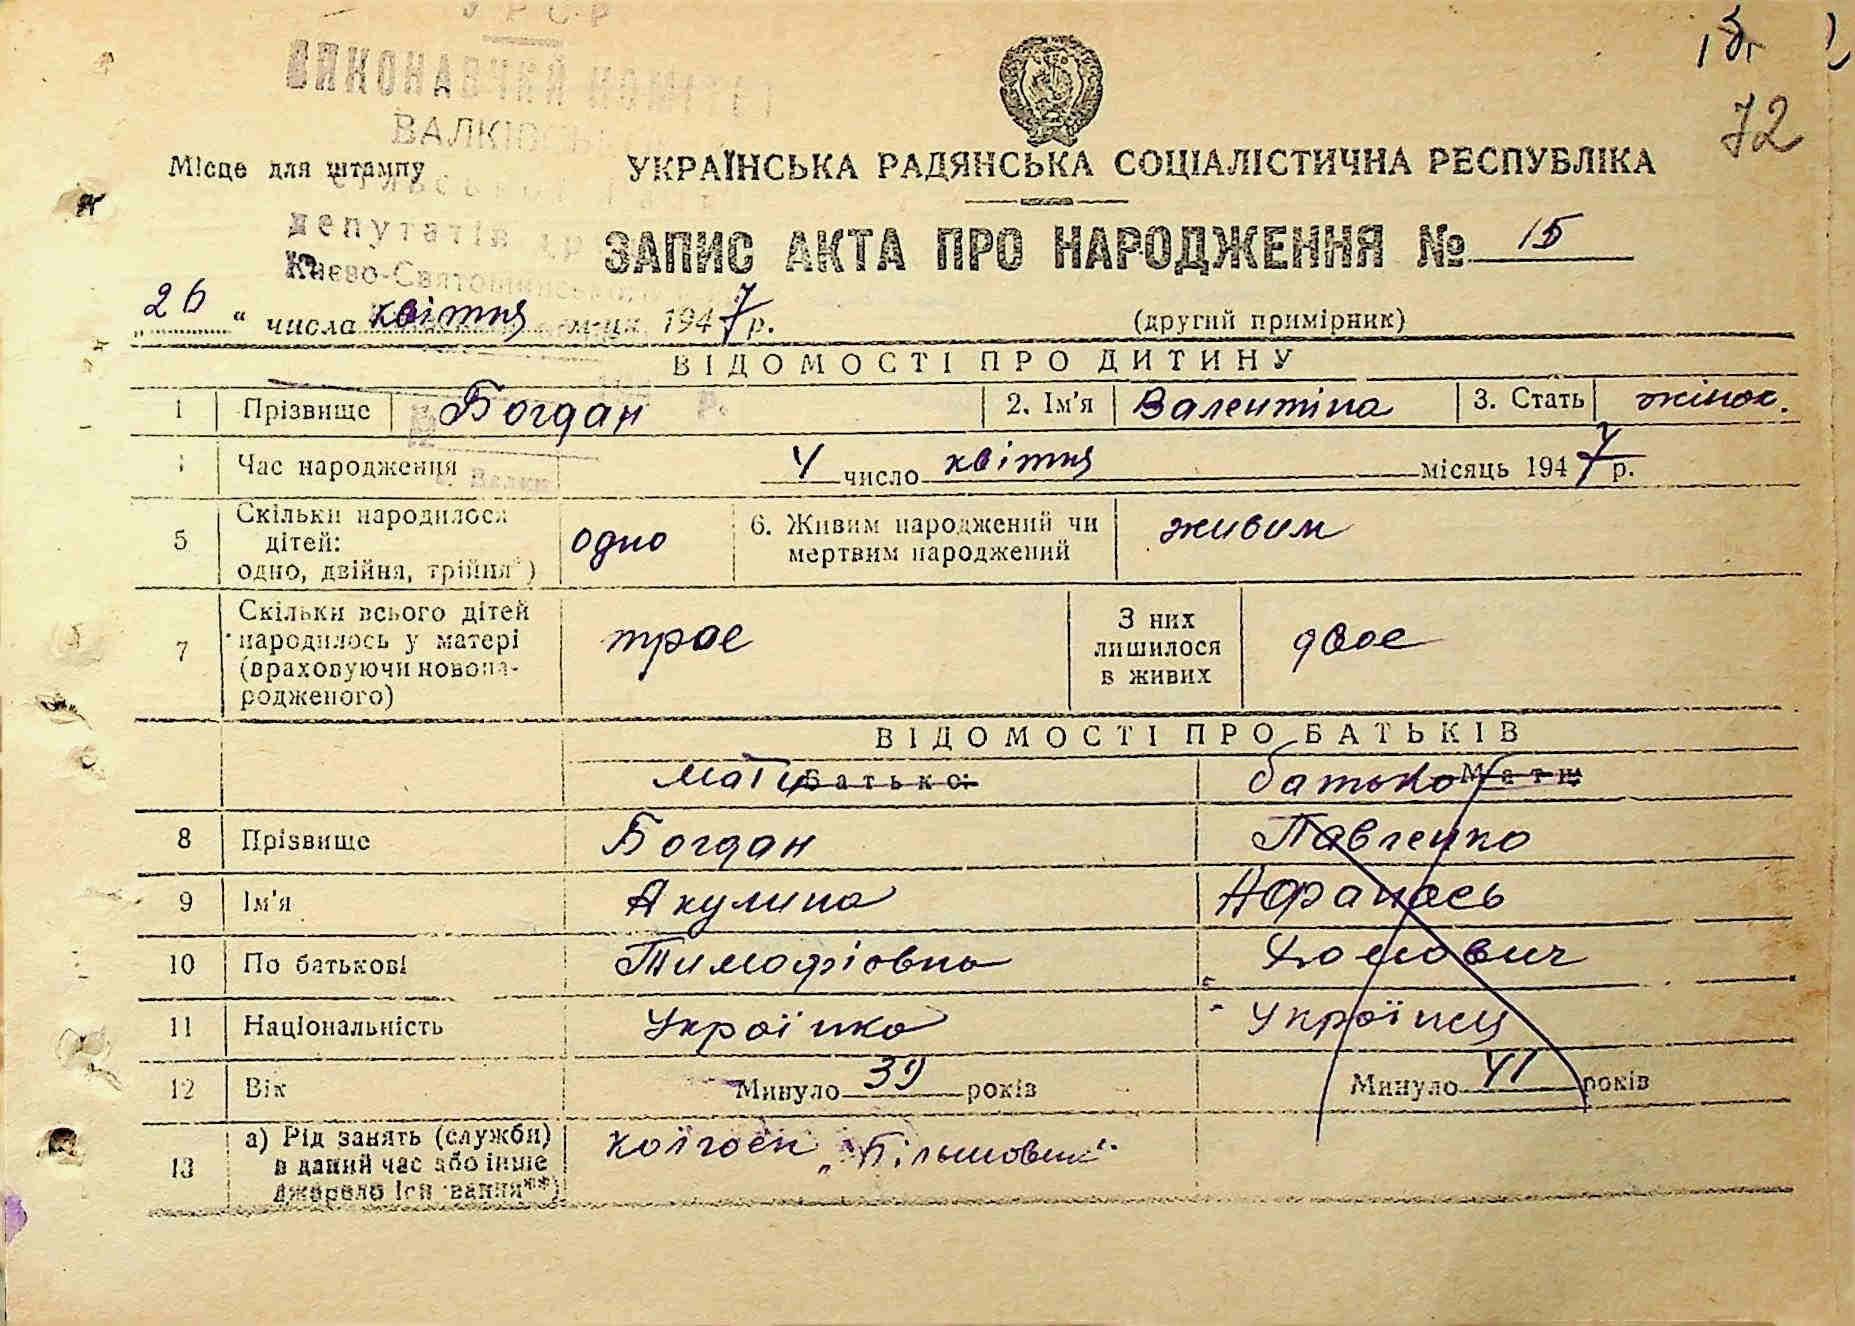 УРСР
ВИКОНАВЧИЙ КОМІТЕТ
ВАЛКІВСЬ
15
72
Місце для штампу
УКРАЇНСЬКА РАДЯНСЬКА СОЦІАЛІСТИЧНА РЕСПУБЛІКА
депутатів
Києво-Святошинськ
ЗАПИС АКТА ПРО НАРОДЖЕННЯ № 15
„26“ числа квітня м-ця 1947 р.
(другий примірник)
ВІДОМОСТІ ПРО ДИТИНУ
1 Прізвище Богдан 2. Ім'я Валентина 3. Стать жіноч.
Час народження 4 число квітня місяць 1947 р.
с. Валки
5 Скільки народилося дітей: одно, двійня, трійня*) одно 6. Живим народжений чи мертвим народжений живим
7 Скільки всього дітей народилось у матері (враховуючи новона-родженого) троє З них лишилося в живих двоє
ВІДОМОСТІ ПРО БАТЬКІВ
мати Батько: батько Мати
8 Прізвище Богдан Павленко
9 Ім'я Акулина Афанась
10 По батькові Тимофіовна
11 Національність Українка Українец
12 Вік Минуло 39 років Минуло 41 років
13 а) Рід занять (служби) в даний час або інше джерело існування**) колгосп „Більшовик"